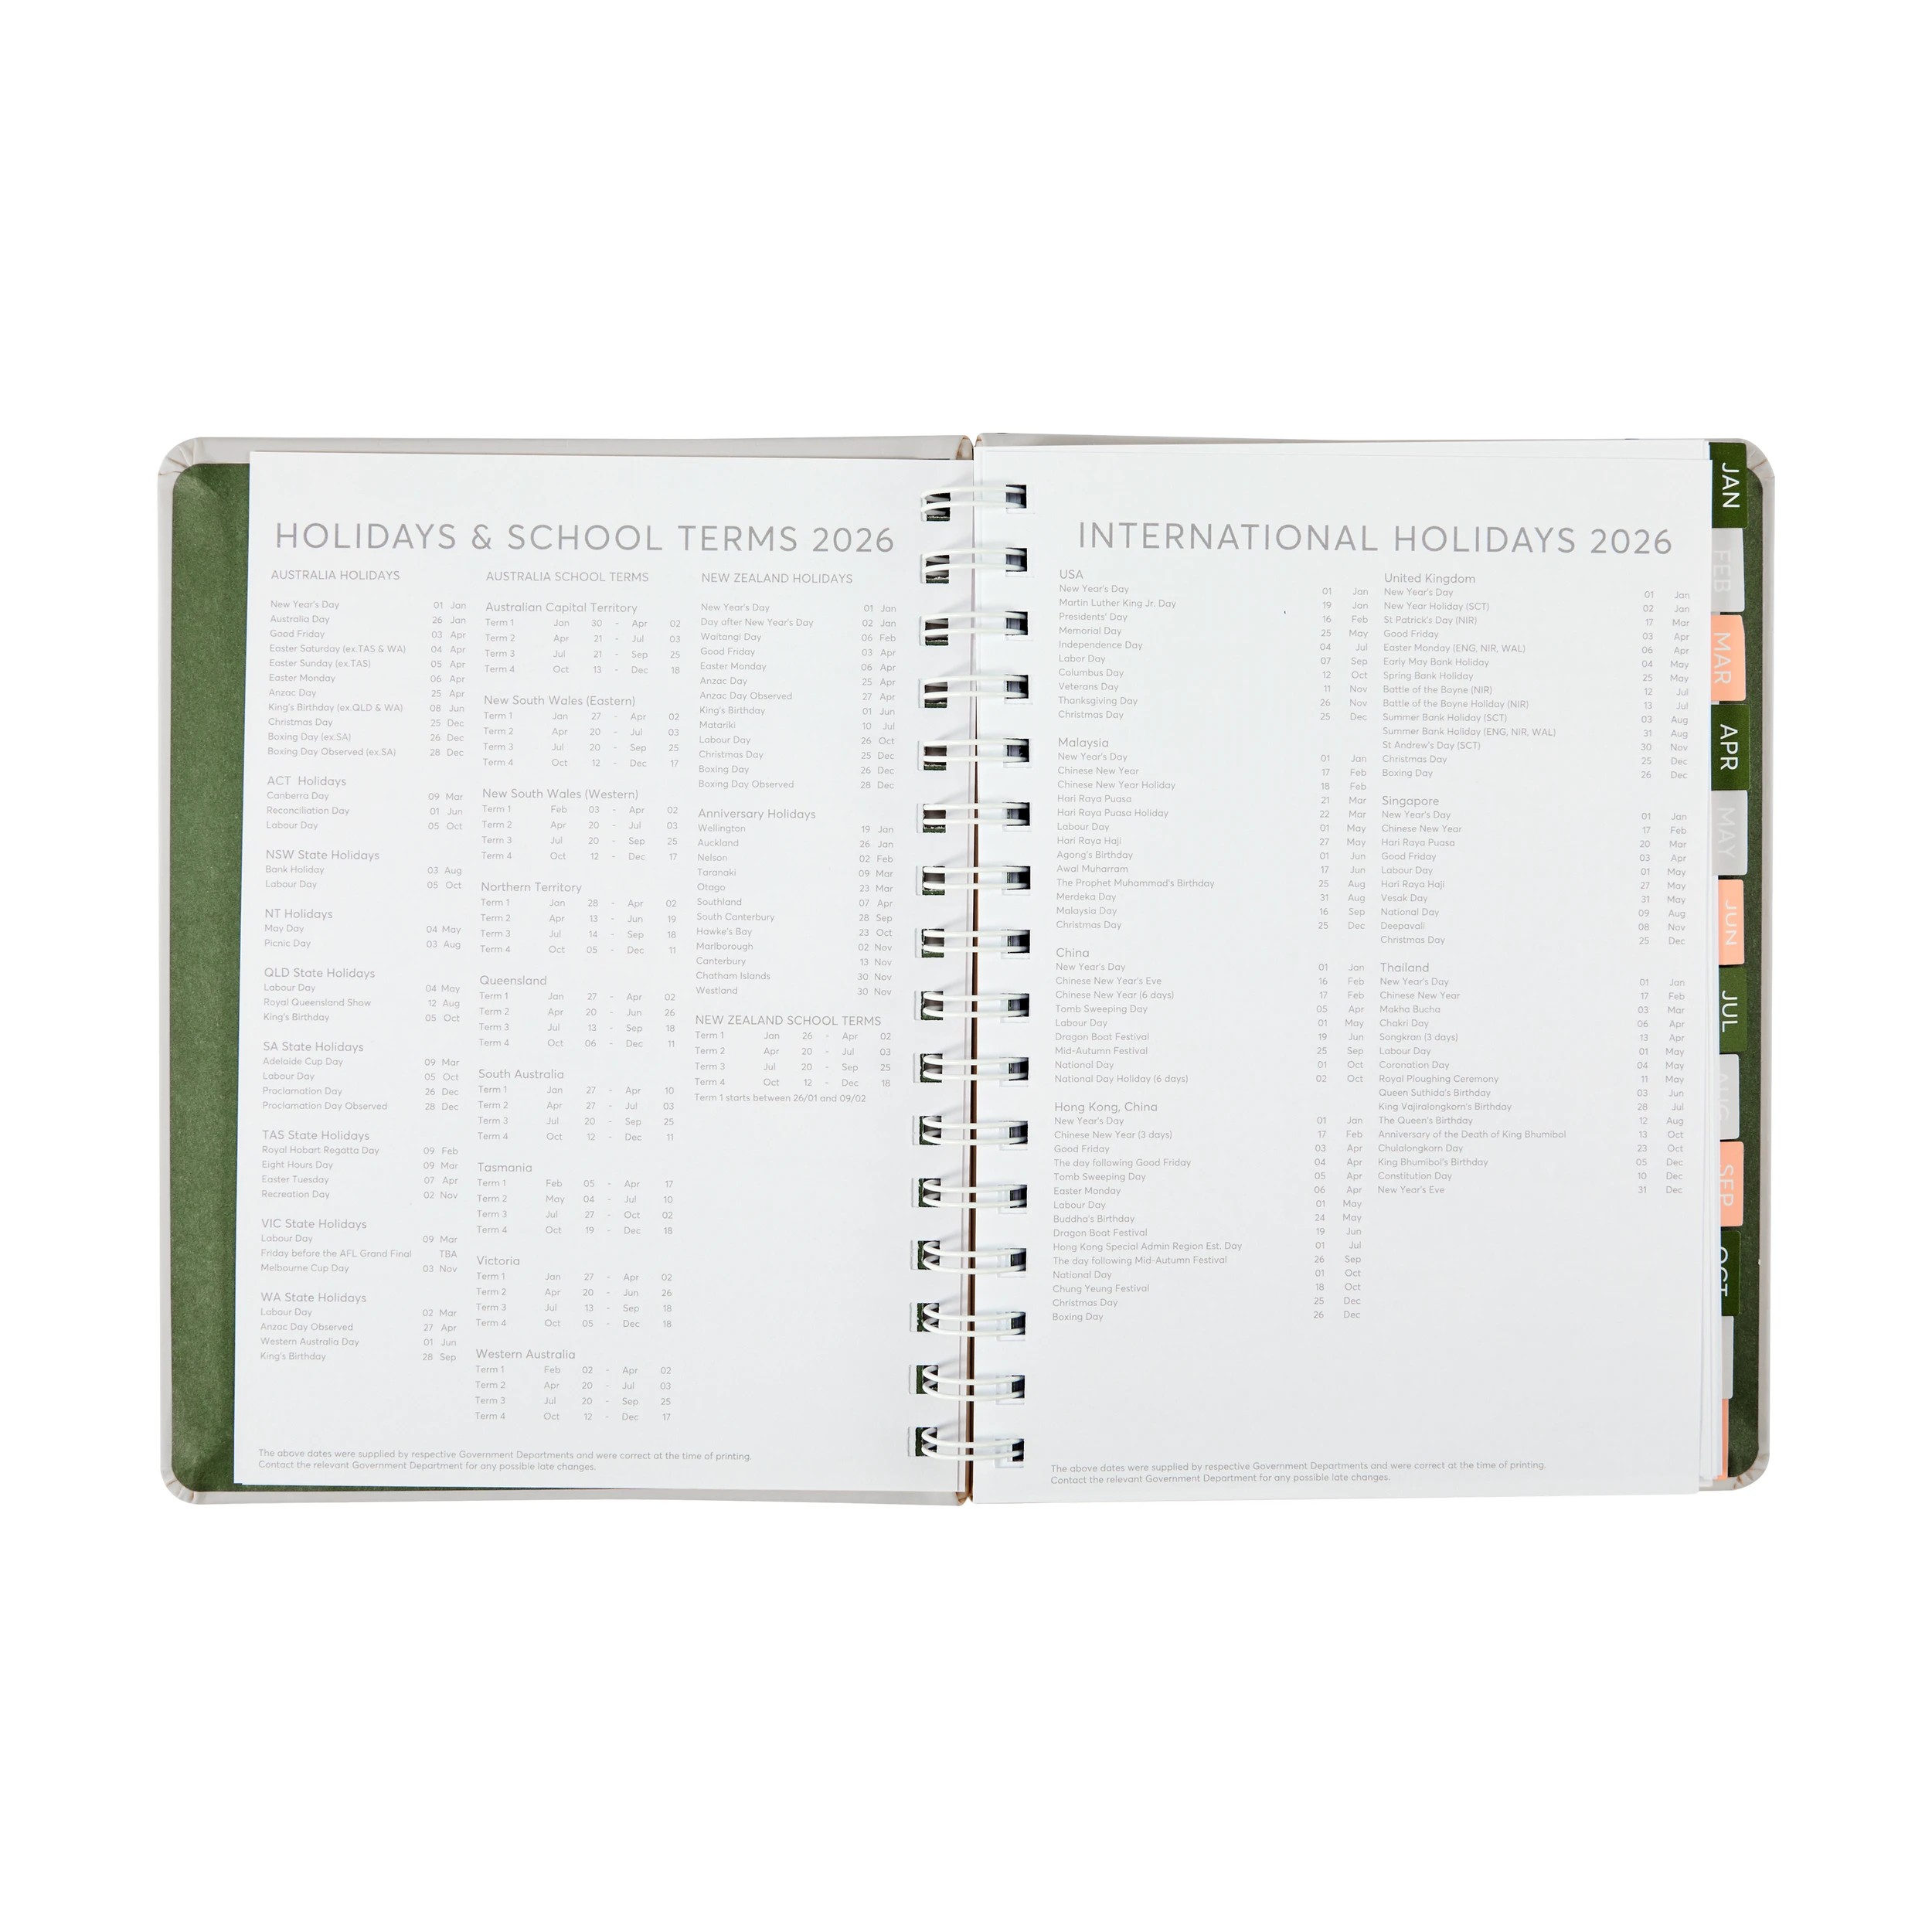 HOLIDAYS & SCHOOL TERMS 2026
AUSTRALIA HOLIDAYS
New Year's Day 01 Jan
Australia Day 26 Jan
Good Friday 03 Apr
Easter Saturday (ex.TAS & WA) 04 Apr
Easter Sunday (ex.TAS) 05 Apr
Easter Monday 06 Apr
Anzac Day 25 Apr
King's Birthday (ex.QLD & WA) 08 Jun
Christmas Day 25 Dec
Boxing Day (ex.SA) 26 Dec
Boxing Day Observed (ex.SA) 28 Dec
ACT Holidays
Canberra Day 09 Mar
Reconciliation Day 01 Jun
Labour Day 05 Oct
NSW State Holidays
Bank Holiday 03 Aug
Labour Day 05 Oct
NT Holidays
May Day 04 May
Picnic Day 03 Aug
QLD State Holidays
Labour Day 04 May
Royal Queensland Show 12 Aug
King's Birthday 05 Oct
SA State Holidays
Adelaide Cup Day 09 Mar
Labour Day 05 Oct
Proclamation Day 26 Dec
Proclamation Day Observed 28 Dec
TAS State Holidays
Royal Hobart Regatta Day 09 Feb
Eight Hours Day 09 Mar
Easter Tuesday 07 Apr
Recreation Day 02 Nov
VIC State Holidays
Labour Day 09 Mar
Friday before the AFL Grand Final TBA
Melbourne Cup Day 03 Nov
WA State Holidays
Labour Day 02 Mar
Anzac Day Observed 27 Apr
Western Australia Day 01 Jun
King's Birthday 28 Sep
AUSTRALIA SCHOOL TERMS
Australian Capital Territory
Term 1 Jan 30 - Apr 02
Term 2 Apr 21 - Jul 03
Term 3 Jul 21 - Sep 25
Term 4 Oct 13 - Dec 18
New South Wales (Eastern)
Term 1 Jan 27 - Apr 02
Term 2 Apr 20 - Jul 03
Term 3 Jul 20 - Sep 25
Term 4 Oct 12 - Dec 17
New South Wales (Western)
Term 1 Feb 03 - Apr 02
Term 2 Apr 20 - Jul 03
Term 3 Jul 20 - Sep 25
Term 4 Oct 12 - Dec 17
Northern Territory
Term 1 Jan 28 - Apr 02
Term 2 Apr 13 - Jun 19
Term 3 Jul 14 - Sep 18
Term 4 Oct 05 - Dec 11
Queensland
Term 1 Jan 27 - Apr 02
Term 2 Apr 20 - Jun 26
Term 3 Jul 13 - Sep 18
Term 4 Oct 06 - Dec 11
South Australia
Term 1 Jan 27 - Apr 10
Term 2 Apr 27 - Jul 03
Term 3 Jul 20 - Sep 25
Term 4 Oct 12 - Dec 11
Tasmania
Term 1 Feb 05 - Apr 17
Term 2 May 04 - Jul 10
Term 3 Jul 27 - Oct 02
Term 4 Oct 19 - Dec 18
Victoria
Term 1 Jan 27 - Apr 02
Term 2 Apr 20 - Jun 26
Term 3 Jul 13 - Sep 18
Term 4 Oct 05 - Dec 18
Western Australia
Term 1 Feb 02 - Apr 02
Term 2 Apr 20 - Jul 03
Term 3 Jul 20 - Sep 25
Term 4 Oct 12 - Dec 17
NEW ZEALAND HOLIDAYS
New Year's Day 01 Jan
Day after New Year's Day 02 Jan
Waitangi Day 06 Feb
Good Friday 03 Apr
Easter Monday 06 Apr
Anzac Day 25 Apr
Anzac Day Observed 27 Apr
King's Birthday 01 Jun
Matariki 10 Jul
Labour Day 26 Oct
Christmas Day 25 Dec
Boxing Day 26 Dec
Boxing Day Observed 28 Dec
Anniversary Holidays
Wellington 19 Jan
Auckland 26 Jan
Nelson 02 Feb
Taranaki 09 Mar
Otago 23 Mar
Southland 07 Apr
South Canterbury 28 Sep
Hawke's Bay 23 Oct
Marlborough 02 Nov
Canterbury 13 Nov
Chatham Islands 30 Nov
Westland 30 Nov
NEW ZEALAND SCHOOL TERMS
Term 1 Jan 26 - Apr 02
Term 2 Apr 20 - Jul 03
Term 3 Jul 20 - Sep 25
Term 4 Oct 12 - Dec 18
Term 1 starts between 26/01 and 09/02
The above dates were supplied by respective Government Departments and were correct at the time of printing.
Contact the relevant Government Department for any possible late changes.
INTERNATIONAL HOLIDAYS 2026
USA
New Year's Day 01 Jan
Martin Luther King Jr. Day 19 Jan
Presidents' Day 16 Feb
Memorial Day 25 May
Independence Day 04 Jul
Labor Day 07 Sep
Columbus Day 12 Oct
Veterans Day 11 Nov
Thanksgiving Day 26 Nov
Christmas Day 25 Dec
Malaysia
New Year's Day 01 Jan
Chinese New Year 17 Feb
Chinese New Year Holiday 18 Feb
Hari Raya Puasa 21 Mar
Hari Raya Puasa Holiday 22 Mar
Labour Day 01 May
Hari Raya Haji 27 May
Agong's Birthday 01 Jun
Awal Muharram 17 Jun
The Prophet Muhammad's Birthday 25 Aug
Merdeka Day 31 Aug
Malaysia Day 16 Sep
Christmas Day 25 Dec
China
New Year's Day 01 Jan
Chinese New Year's Eve 16 Feb
Chinese New Year (6 days) 17 Feb
Tomb Sweeping Day 05 Apr
Labour Day 01 May
Dragon Boat Festival 19 Jun
Mid-Autumn Festival 25 Sep
National Day 01 Oct
National Day Holiday (6 days) 02 Oct
Hong Kong, China
New Year's Day 01 Jan
Chinese New Year (3 days) 17 Feb
Good Friday 03 Apr
The day following Good Friday 04 Apr
Tomb Sweeping Day 05 Apr
Easter Monday 06 Apr
Labour Day 01 May
Buddha's Birthday 24 May
Dragon Boat Festival 19 Jun
Hong Kong Special Admin Region Est. Day 01 Jul
The day following Mid-Autumn Festival 26 Sep
National Day 01 Oct
Chung Yeung Festival 18 Oct
Christmas Day 25 Dec
Boxing Day 26 Dec
United Kingdom
New Year's Day 01 Jan
New Year Holiday (SCT) 02 Jan
St Patrick's Day (NIR) 17 Mar
Good Friday 03 Apr
Easter Monday (ENG, NIR, WAL) 06 Apr
Early May Bank Holiday 04 May
Spring Bank Holiday 25 May
Battle of the Boyne (NIR) 12 Jul
Battle of the Boyne Holiday (NIR) 13 Jul
Summer Bank Holiday (SCT) 03 Aug
Summer Bank Holiday (ENG, NIR, WAL) 31 Aug
St Andrew's Day (SCT) 30 Nov
Christmas Day 25 Dec
Boxing Day 26 Dec
Singapore
New Year's Day 01 Jan
Chinese New Year 17 Feb
Hari Raya Puasa 20 Mar
Good Friday 03 Apr
Labour Day 01 May
Hari Raya Haji 27 May
Vesak Day 31 May
National Day 09 Aug
Deepavali 08 Nov
Christmas Day 25 Dec
Thailand
New Year's Day 01 Jan
Chinese New Year 17 Feb
Makha Bucha 03 Mar
Chakri Day 06 Apr
Songkran (3 days) 13 Apr
Labour Day 01 May
Coronation Day 04 May
Royal Ploughing Ceremony 11 May
Queen Suthida's Birthday 03 Jun
King Vajiralongkorn's Birthday 28 Jul
The Queen's Birthday 12 Aug
Anniversary of the Death of King Bhumibol 13 Oct
Chulalongkorn Day 23 Oct
King Bhumibol's Birthday 05 Dec
Constitution Day 10 Dec
New Year's Eve 31 Dec
The above dates were supplied by respective Government Departments and were correct at the time of printing.
Contact the relevant Government Department for any possible late changes.
JAN
FEB
MAR
APR
MAY
JUN
JUL
AUG
SEP
OCT